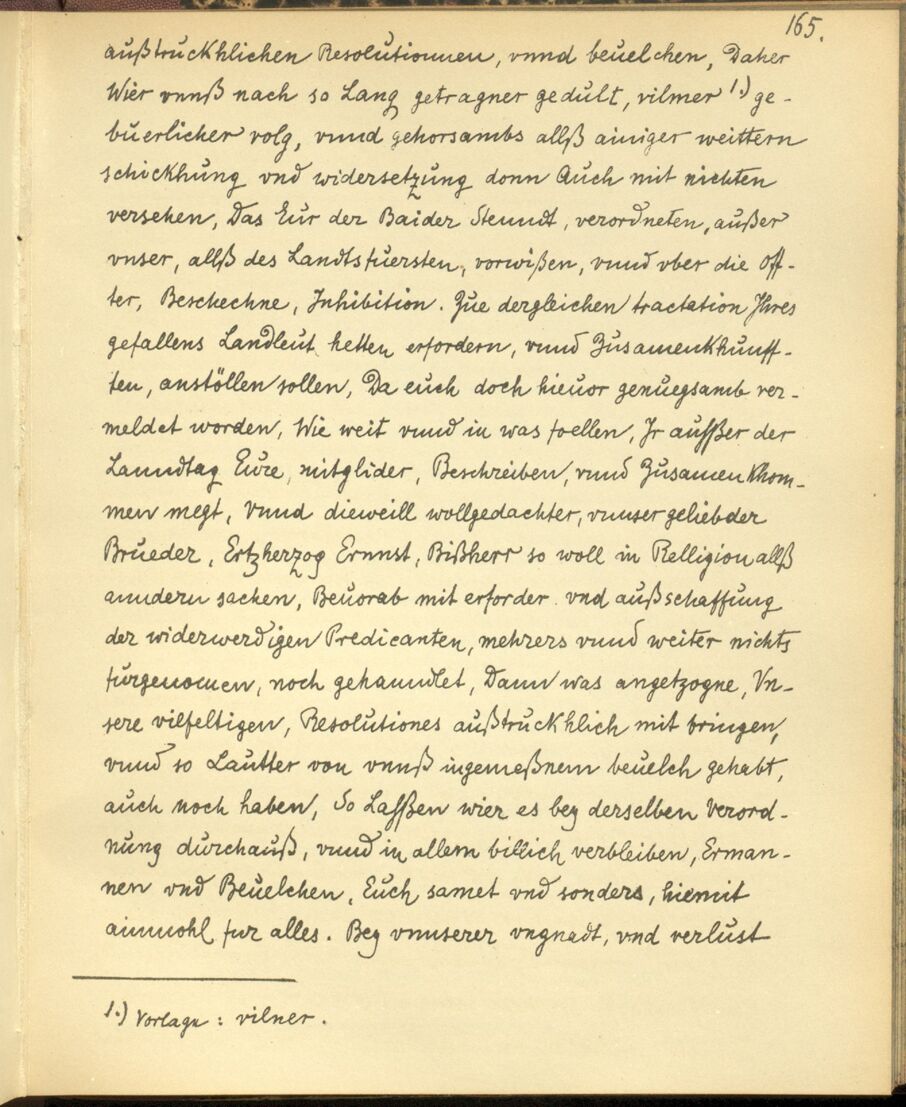 165.
außtruckhlichen Resolutionnen, vnnd beuelchen, Daher
Wier vnnß nach so Lang getragner gedult, vilmer 1.) ge-
büerlicher volg, vnnd gehorsambs allß ainiger weittern
schickhung vnd widersetzung donn Auch mit nichten
versehen, Das Eur der Baider Stenndt, verordneten, außer
vnser, allß des Landtsfuersten, vorwißen, vnnd vber die Off-
ter, Beschechne, Inhibition. Zue dergleichen tractation Ihres
gefallens Landleut hetten erfordern, vnnd Zusamenkhunff-
ten, anstöllen sollen, Da euch doch hieuor genuegsamb ver-
meldet worden, Wie weit vnnd in was foellen, Ir aussßer der
Lanndtag Eure, mitglider, Beschreiben, vnnd Zusamen Khom-
men megt, Vnnd dieweill wollgedachter, vnnser geliebder
Brueder, Ertzherzog Ernnst, Bißherr so woll in Relligion allß
anndern sachen, Beuorab mit erforder. vnd außschaffung
der widerwerdigen Predicanten, mehrers vnnd weiter nichts
fürgenomen, noch gehanndlet, Dann was angetzogne, Vn-
sere vilfeltigen, Resolutiones außtruckhlich mit bringen,
vnnd so Lautter von vnnß ingemeßnem beuelch gehabt,
auch noch haben, So Lassßen wier es bey derselben Verord-
nung durchauß, vnnd in allem billich verbleiben, Erman-
nen vnd Beuelchen, Euch samet vnd sonders, hiemit
ainmohl fur alles. Bey vnnserer vngnadt, vnd verlust
1.) Vorlage: vilner.